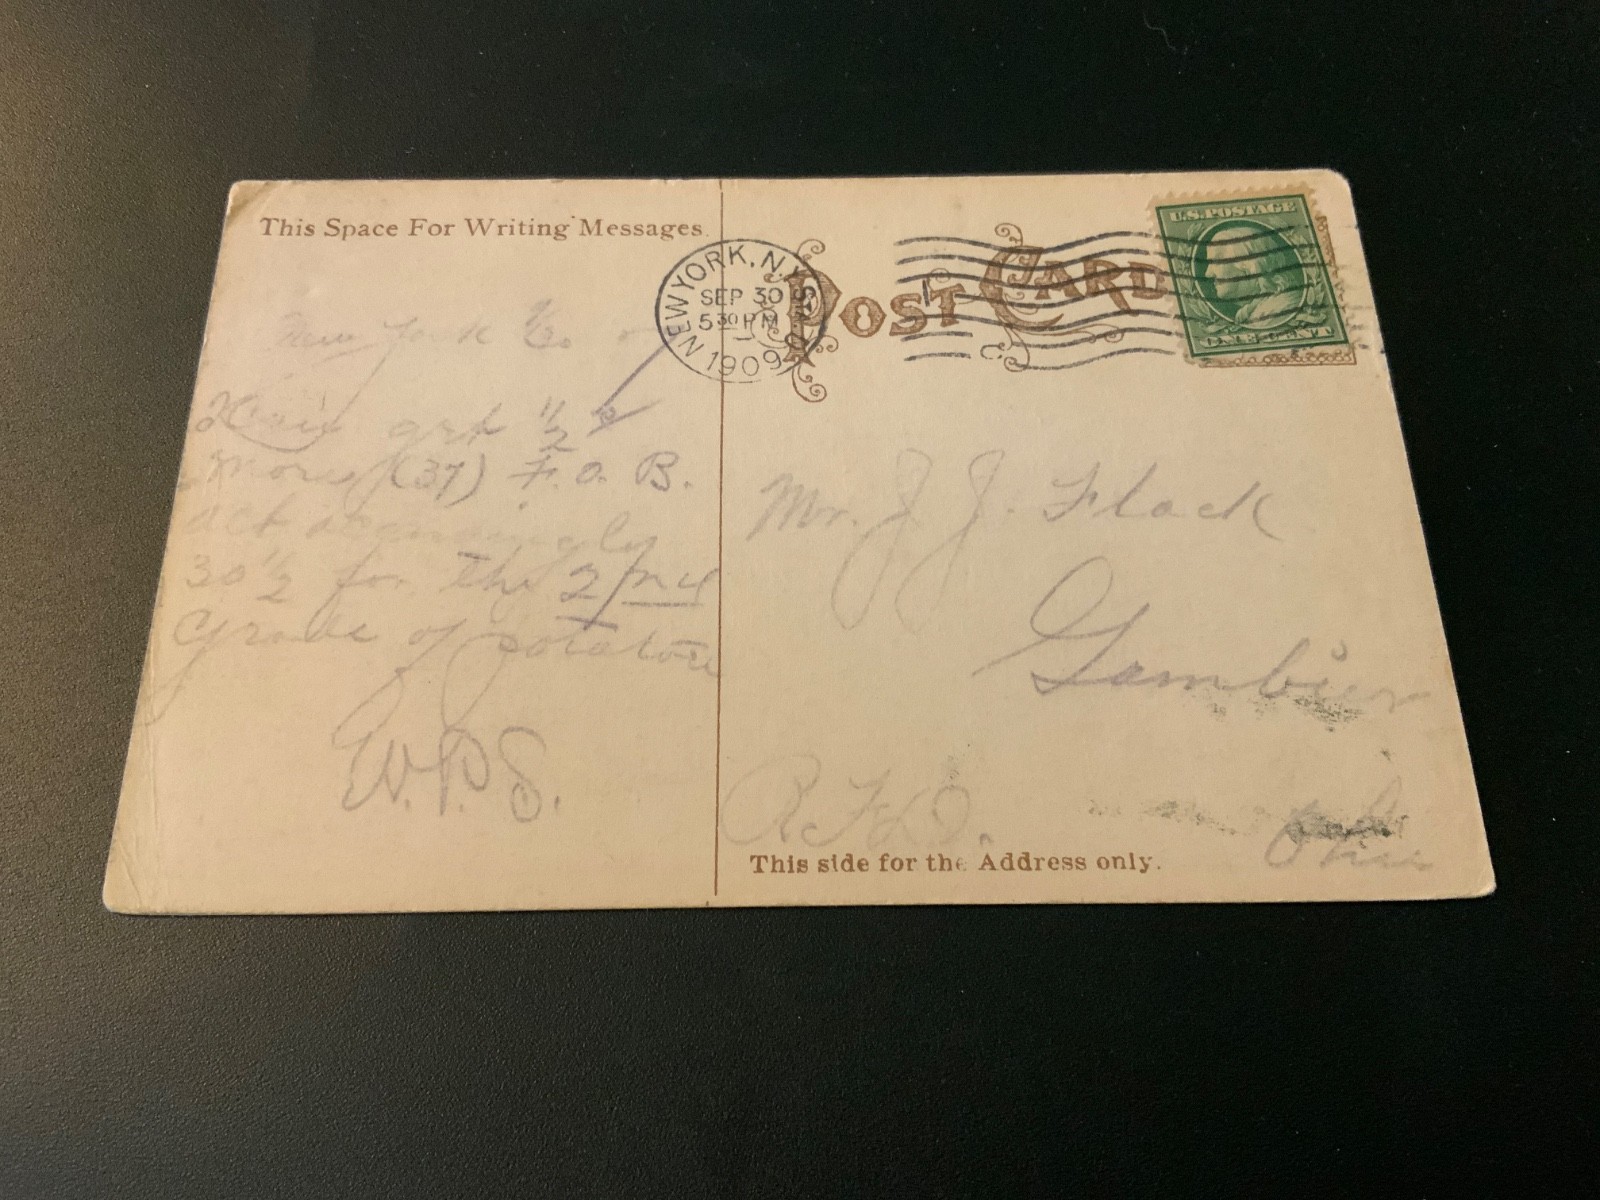 This Space For Writing Messages.
NEW YORK, N.Y. STA.
SEP 30
5 30 PM
1909
POST CARD
U.S. POSTAGE
ONE CENT
New York
get 1/2 ¢
more (37) F.O.B.
act accordingly
30 1/2 for the 2nd
grade of potatoes
W.P.S.
Mr. J. J. Flack
Gambier
R.F.D.
Ohio
This side for the Address only.